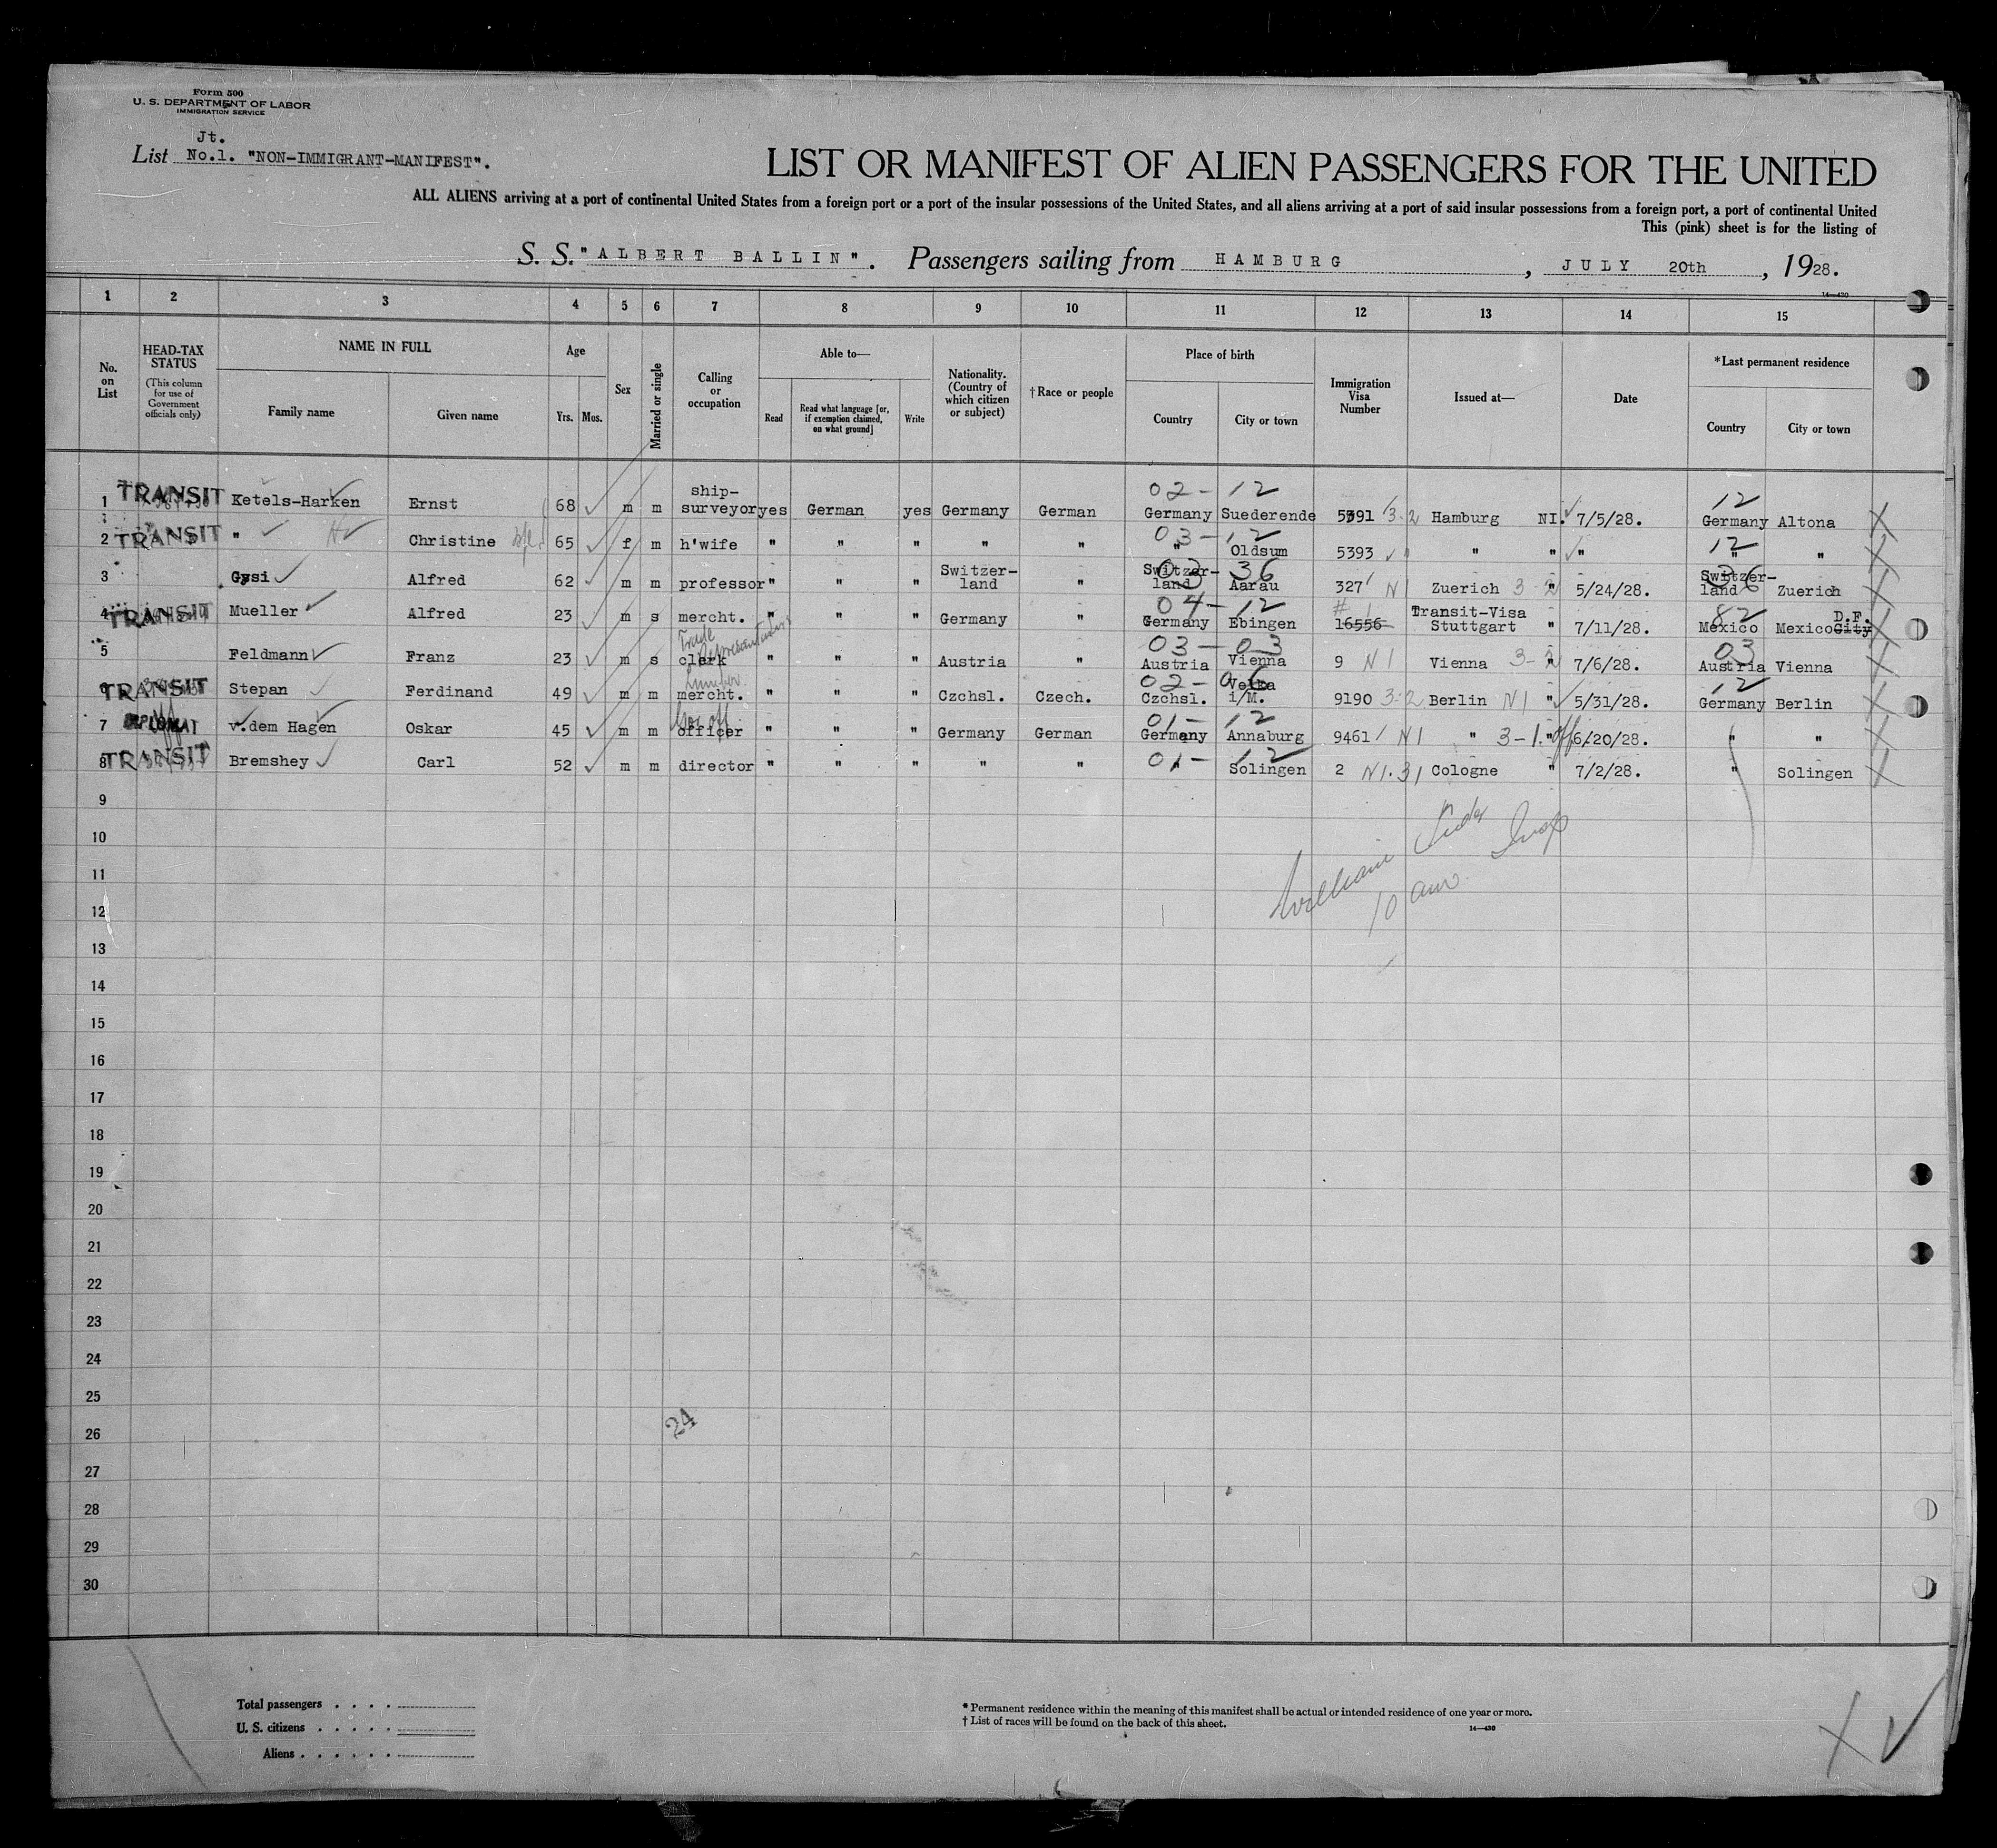 Form 500
U. S. DEPARTMENT OF LABOR
IMMIGRATION SERVICE
Jt.
List No.1. "NON-IMMIGRANT-MANIFEST".
LIST OR MANIFEST OF ALIEN PASSENGERS FOR THE UNITED
ALL ALIENS arriving at a port of continental United States from a foreign port or a port of the insular possessions of the United States, and all aliens arriving at a port of said insular possessions from a foreign port, a port of continental United
This (pink) sheet is for the listing of
S. S. "ALBERT BALLIN". Passengers sailing from HAMBURG, JULY 20th, 1928.
14—430
1 2 3 4 5 6 7 8 9 10 11 12 13 14 15
No. on List
HEAD-TAX STATUS (This column for use of Government officials only)
NAME IN FULL
Family name Given name
Age
Yrs. Mos.
Sex
Married or single
Calling or occupation
Able to—
Read
Read what language [or, if exemption claimed, on what ground]
Write
Nationality. (Country of which citizen or subject)
†Race or people
Place of birth
Country City or town
Immigration Visa Number
Issued at—
Date
*Last permanent residence
Country City or town
02-12 12
1 TRANSIT Ketels-Harken Ernst 68 m m ship-surveyor yes German yes Germany German Germany Suederende 5391 3-2 Hamburg NI. 7/5/28. Germany Altona X
03-12 12
2 TRANSIT " Christine 65 f m h'wife " " " " " " Oldsum 5393 " " " " " X
03 36 36
3 Gysi Alfred 62 m m professor " " " Switzer-land " Switzer-land Aarau 327 N1 Zuerich 3-2 " 5/24/28. Switzer-land Zuerich X
04-12 82
4 TRANSIT Mueller Alfred 23 m s mercht. " " " Germany " Germany Ebingen # 16556 Transit-Visa Stuttgart " 7/11/28. Mexico Mexico City D.F. X
Trade Representative
03-03 03
5 Feldmann Franz 23 m s clerk " " " Austria " Austria Vienna 9 N1 Vienna 3-2 " 7/6/28. Austria Vienna X
Lumber
02-06 12
6 TRANSIT Stepan Ferdinand 49 m m mercht. " " " Czchsl. Czech. Czchsl. Velka i/M. 9190 3-2 Berlin N1 " 5/31/28. Germany Berlin X
Gov off
01-12
7 DIPLOMAT v.dem Hagen Oskar 45 m m officer " " " Germany German Germany Annaburg 9461 N1 " 3-1 " off 6/20/28. " " X
01-12
8 TRANSIT Bremshey Carl 52 m m director " " " " " " Solingen 2 N1.31 Cologne " 7/2/28. " Solingen X
9
10
11
William Insp
10 am
12
13
14
15
16
17
18
19
20
21
22
23
24
25
24
26
27
28
29
30
Total passengers . . . .
U. S. citizens . . . . .
Aliens . . . . . .
* Permanent residence within the meaning of this manifest shall be actual or intended residence of one year or more.
† List of races will be found on the back of this sheet.
14—430
X